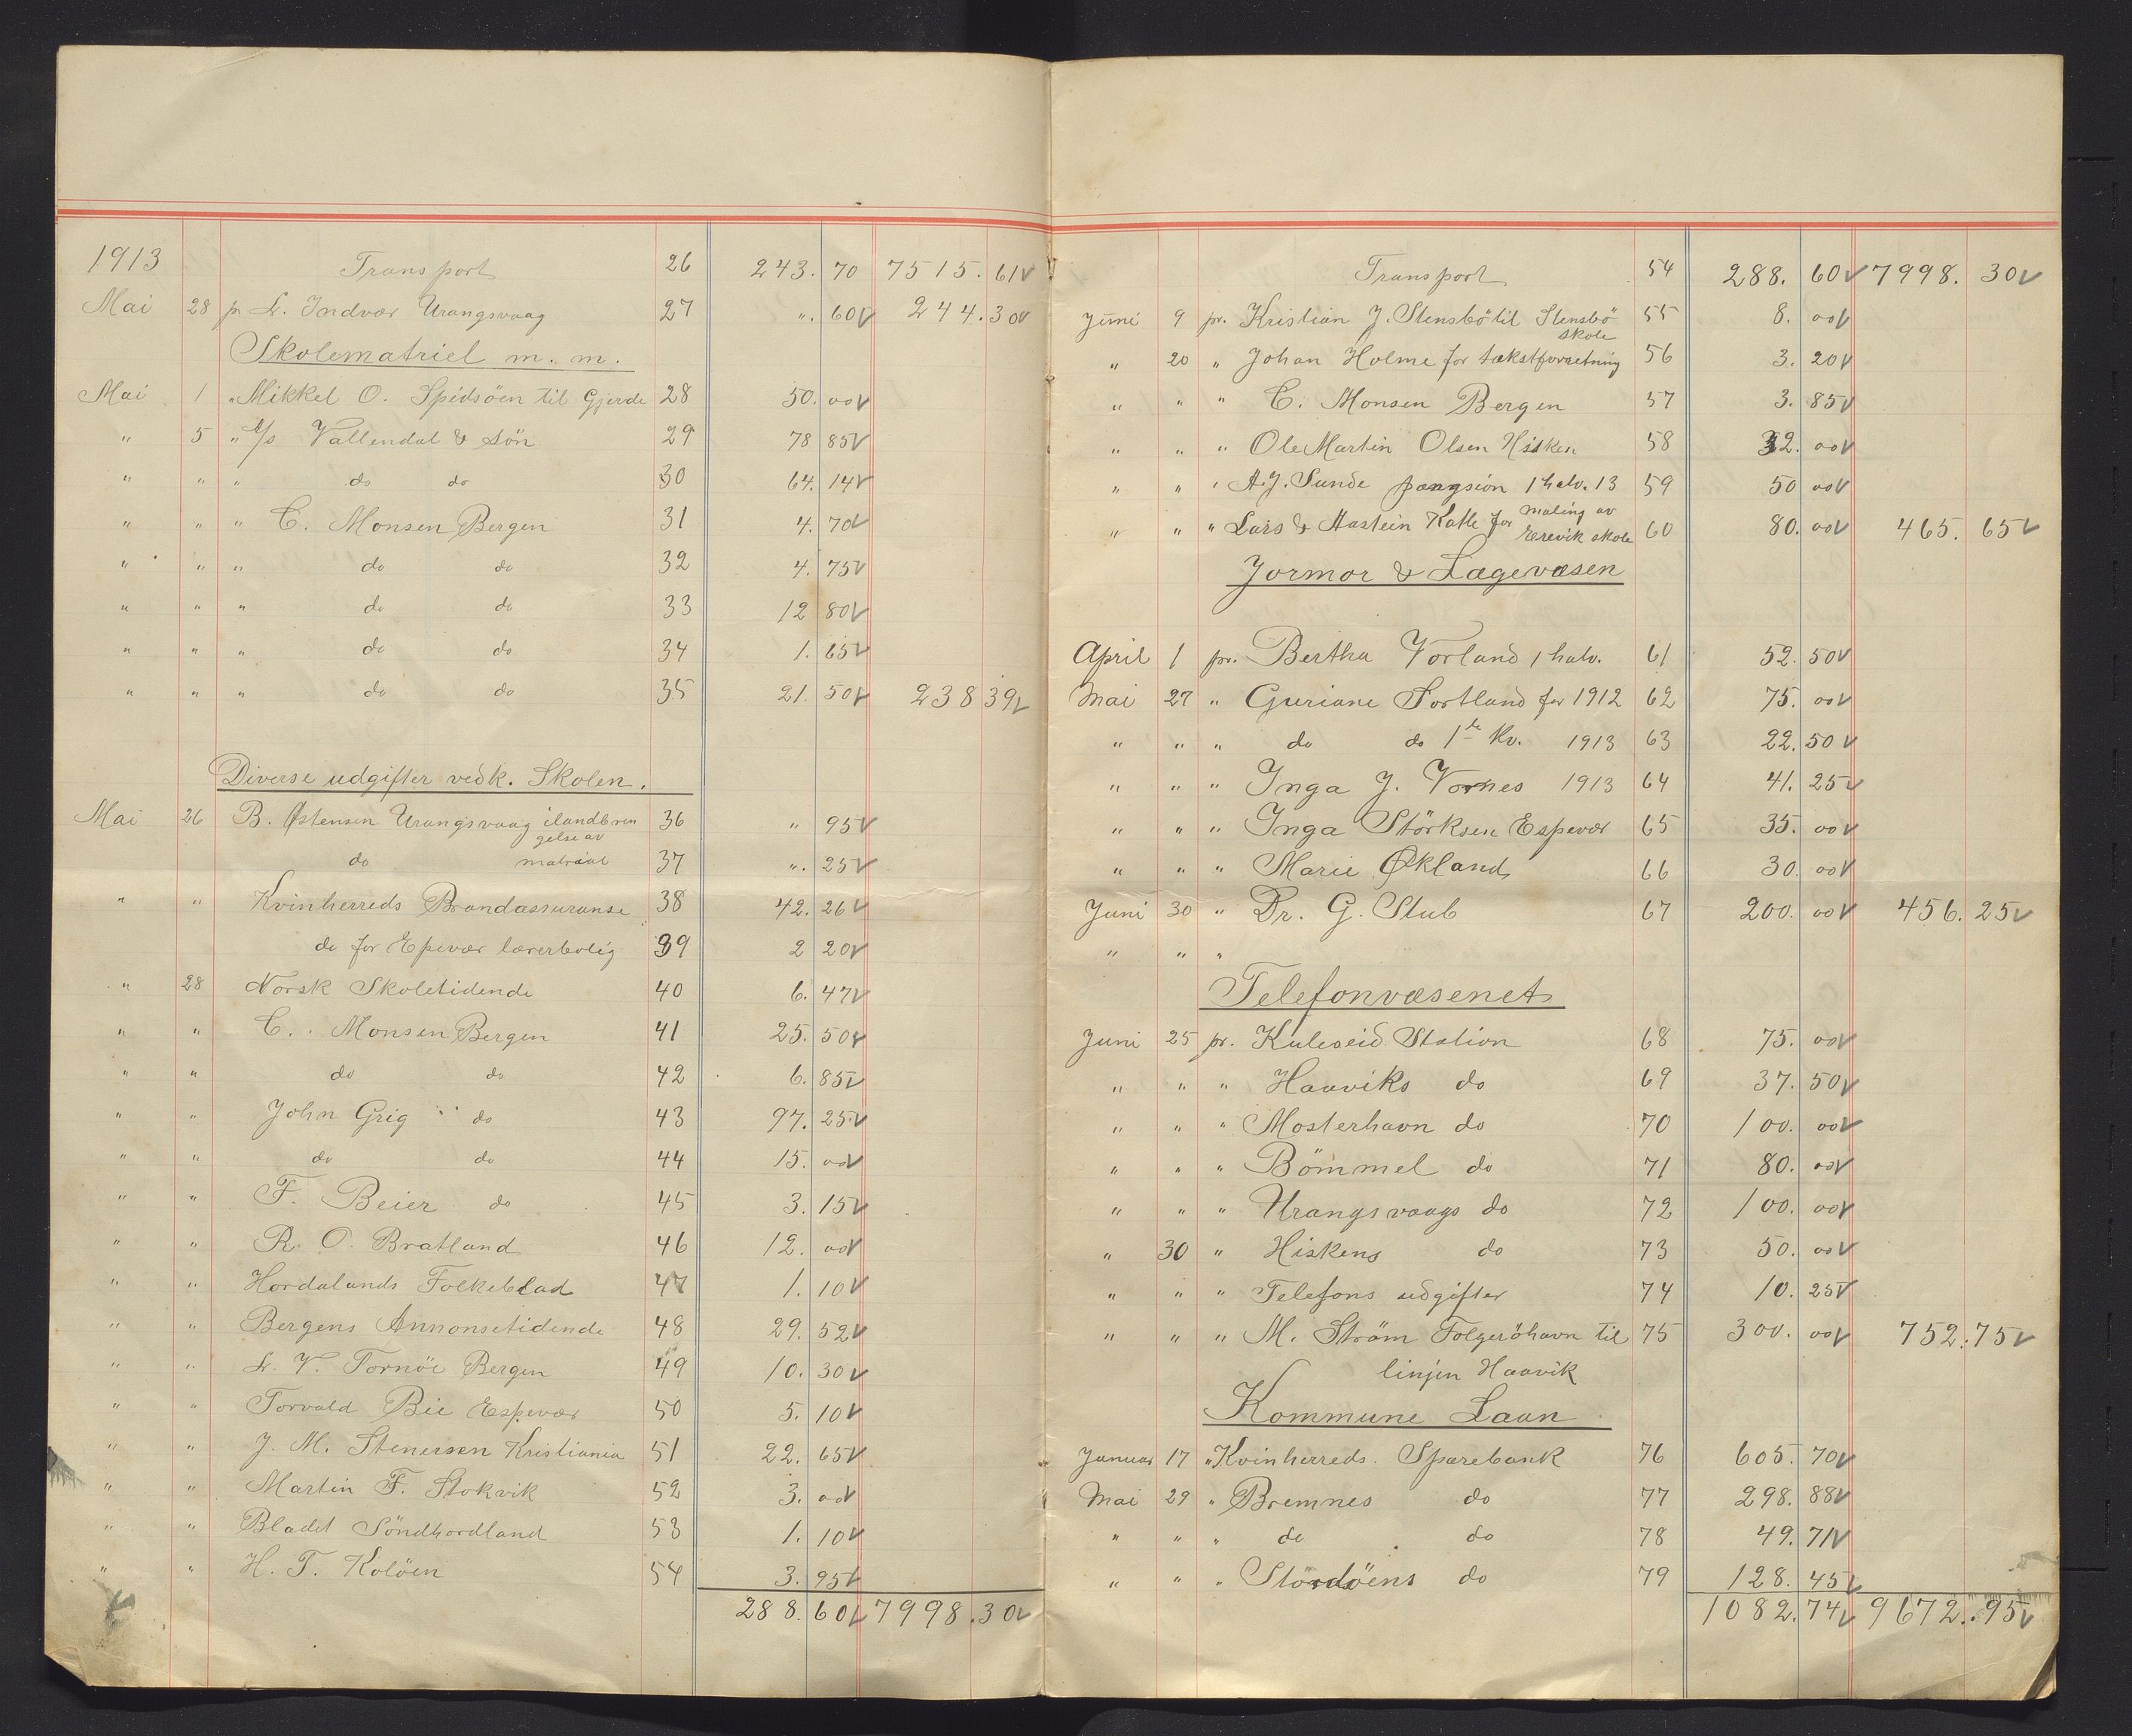 1913 Transport 26 243. 70 7515. 61
Mai 28 p. L. Indvær Urangsvaag 27 ". 60 244. 30
Skolematriel m. m.
Mai 1 " Mikkel O. Spidsöen til Gjerde 28 50. 00
" 5 " A/s Vallendal & Sön 29 78 85
" " " do do 30 64. 14
" " " C. Monsen Bergen 31 4. 70
" " " do do 32 4. 75
" " " do do 33 12 80
" " " do do 34 1. 65
" " " do do 35 21. 50 238 39
Diverse udgifter vedk. Skolen.
Mai 26 B. Østensen Urangsvaag ilandbrin 36 " 95
gelse av
do matrial 37 ". 25
" " Kvinherreds Brandassuranse 38 42. 26
do for Epevær lærerbolig 39 2 20
" 28 Norsk Skoletidende 40 6. 47
" " C. Monsen Bergen 41 25. 50
" " do do 42 6. 85
" " John Grig " do 43 97. 25
" " do do 44 15. 00
" " F. Beier do 45 3. 15
" " R. O. Bratland 46 12. 00
" " Hordalands Folkeblad 47 1. 10
" " Bergens Annonsetidende 48 29. 52
" " L. V. Tornöe Bergen 49 10. 30
" " Torvald Bie Espevær 50 5. 10
" " J. M. Stenersen Kristiania 51 22. 65
" " Martin F. Stokvik 52 3. 00
" " Bladet Söndhordland 53 1. 10
" " H. T. Kolöen 54 3. 95
288. 60 7998. 30
Transport 54 288. 60 7998. 30
Juni 9 pr. Kristian J. Stensbö til Stensbö 55 8. 00
skole
" 20 " Johan Holme for takstforretning 56 3. 20
" " " C. Monsen Bergen 57 3. 85
" " " Ole Martin Olsen Hisken 58 32. 00
" " " A. J. Sunde pangsion 1 halv. 13 59 50 00
" " " Lars & Hastein Katle for maling av
Eerevik skole 60 80. 00 465. 65
Jormor & Lægevæsen
April 1 pr. Bertha Vorland 1 halv. 61 52. 50
Mai 27 " Guriane Fortland for 1912 62 75. 00
" " " do do 1ste Kv. 1913 63 22. 50
" " " Inga J. Vornes 1913 64 41. 25
" " " Inga Störksen Espevær 65 35. 00
" " " Marie Økland 66 30. 00
Juni 30 " Dr. G. Stub 67 200. 00 456. 25
" " "
Telefonvæsenet
Juni 25 pr. Kuleseid Station 68 75. 00
" " " Haaviks do 69 37. 50
" " " Mosterhavn do 70 100. 00
" " " Bömmel do 71 80. 00
" " " Urangsvaags do 72 100. 00
" 30 " Hiskens do 73 50. 00
" " " Telefons udgifter 74 10. 25
" " " M. Ström Folgeröhavn til 75 300. 00 752. 75
linjen Haavik
Kommune Laan
Januar 17 " Kvinherreds. Sparebank 76 605. 70
Mai 29 " Bremnes do 77 298. 88
" " " do do 78 49. 71
" " " Stordöens do 79 128. 45
1082. 74 9672. 95